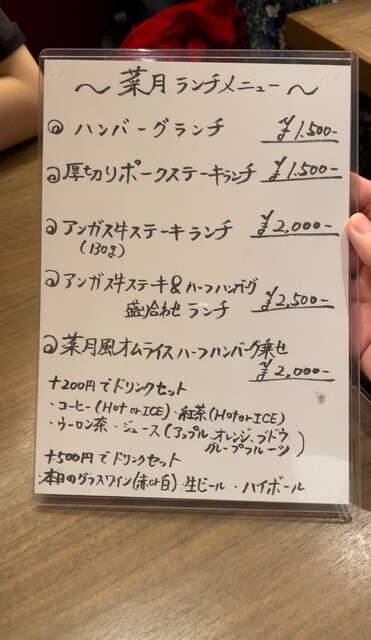 ～菜月ランチメニュー～
◎ハンバーグランチ ¥1.500-
◎厚切りポークステーキランチ ¥1.500-
◎アンガス牛ステーキランチ ¥2,000-
(130g)
◎アンガス牛ステーキ&ハーフハンバーグ
盛り合わせ ランチ ¥2,500-
◎菜月風オムライスハーフハンバーグ乗せ
¥2,000-
+200円でドリンクセット
・コーヒー(Hot or ICE)・紅茶(Hot or ICE)
・ウーロン茶・ジュース(アップル、オレンジ、ブドウ
グレープフルーツ)
+500円でドリンクセット
・本日のグラスワイン(赤or白)・生ビール・ハイボール